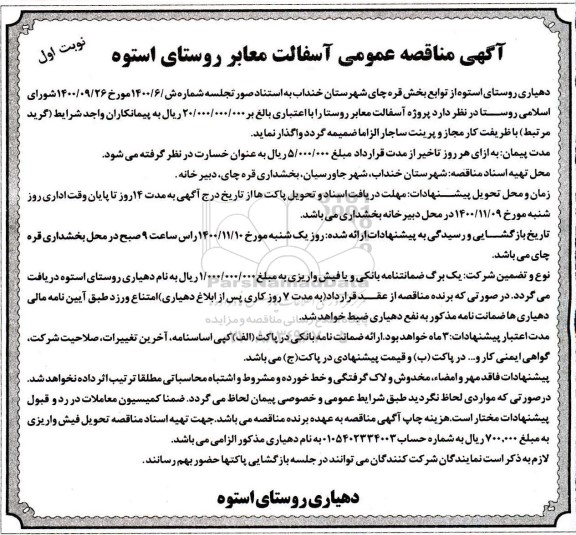 نوبت اول
آگهی مناقصه عمومی آسفالت معابر روستای استوه
دهیاری روستای استوه از توابع بخش قره چای شهرستان خنداب به استناد صورتجلسه شماره ش/۱۴۰۰/۶ مورخ ۱۴۰۰/۰۹/۲۶ شورای
اسلامی روستا در نظر دارد پروژه آسفالت معابر روستا را با اعتباری بالغ بر ۲۰/۰۰۰/۰۰۰/۰۰۰ ریال به پیمانکاران واجد شرایط (گرید
مرتبط) با ظریفت کار مجاز و پرینت ساجار الزاما ضمیمه گردد واگذار نماید.
مدت پیمان: به ازای هر روز تاخیر از مدت قرارداد مبلغ ۵/۰۰۰/۰۰۰ ریال به عنوان خسارت در نظر گرفته می شود.
محل تهیه اسناد مناقصه: شهرستان خنداب، شهر جاورسیان، بخشداری قره چای، دبیر خانه.
زمان و محل تحویل پیشنهادات: مهلت دریافت اسناد و تحویل پاکت ها از تاریخ درج آگهی به مدت ۱۴ روز تا پایان وقت اداری روز
شنبه مورخ ۱۴۰۰/۱۱/۰۹ در محل دبیر خانه بخشداری می باشد.
تاریخ بازگشایی و رسیدگی به پیشنهادات ارائه شده: روز یک شنبه مورخ ۱۴۰۰/۱۱/۱۰ راس ساعت ۹ صبح در محل بخشداری قره
چای می باشد.
نوع و تضمین شرکت: یک برگ ضمانتنامه بانکی و یا فیش واریزی به مبلغ ۱/۰۰۰/۰۰۰/۰۰۰ ریال به نام دهیاری روستای استوه دریافت
می گردد. در صورتی که برنده مناقصه از عقد قرارداد (به مدت ۷ روز کاری پس از ابلاغ دهیاری) امتناع ورزد طبق آیین نامه مالی
دهیاری ها ضمانت نامه مذکور به نفع دهیاری ضبط خواهد شد.
مدت اعتبار پیشنهادات: ۳ ماه خواهد بود. ارائه ضمانت نامه بانکی در پاکت (الف) کپی اساسنامه، آخرین تغییرات، صلاحیت شرکت،
گواهی ایمنی کار و... در پاکت (ب) و قیمت پیشنهادی در پاکت (ج) می باشد.
پیشنهادات فاقد مهر و امضاء، مخدوش و لاک گرفتگی و خط خورده و مشروط و اشتباه محاسباتی مطلقا ترتیب اثر داده نخواهد شد.
در صورتی که مواردی لحاظ نگردید طبق شرایط عمومی و خصوصی پیمان لحاظ می گردد. ضمنا کمیسیون معاملات در رد و قبول
پیشنهادات مختار است. هزینه چاپ آگهی مناقصه به عهده برنده مناقصه می باشد. جهت تهیه اسناد مناقصه تحویل فیش واریزی
به مبلغ ۷۰۰,۰۰۰ ریال به شماره حساب ۰۱۰۵۴۰۲۳۳۴۰۰۳ به نام دهیاری مذکور الزامی می باشد.
لازم به ذکر است نمایندگان شرکت کنندگان می توانند در جلسه بازگشایی پاکتها حضور بهم رسانند.
دهیاری روستای استوه